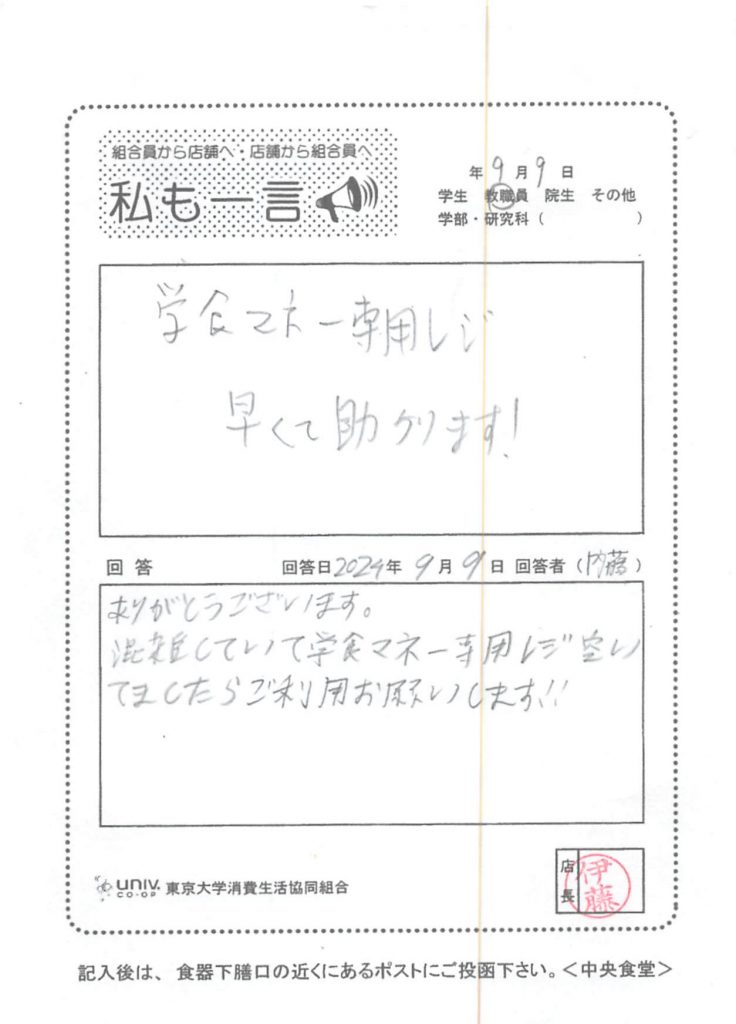 組合員から店舗へ・店舗から組合員へ
私も一言
年 9 月 9 日
学生 教職員 院生 その他
学部・研究科( )
学食マネー専用レジ
早くて助かります!
回答 回答日2024年 9月 9日 回答者(内藤)
ありがとうございます。
混雑していて学食マネー専用レジ空い
てましたらご利用お願いします!!
UNIV. CO-OP 東京大学消費生活協同組合
店長
伊藤
記入後は、食器下膳口の近くにあるポストにご投函下さい。<中央食堂>